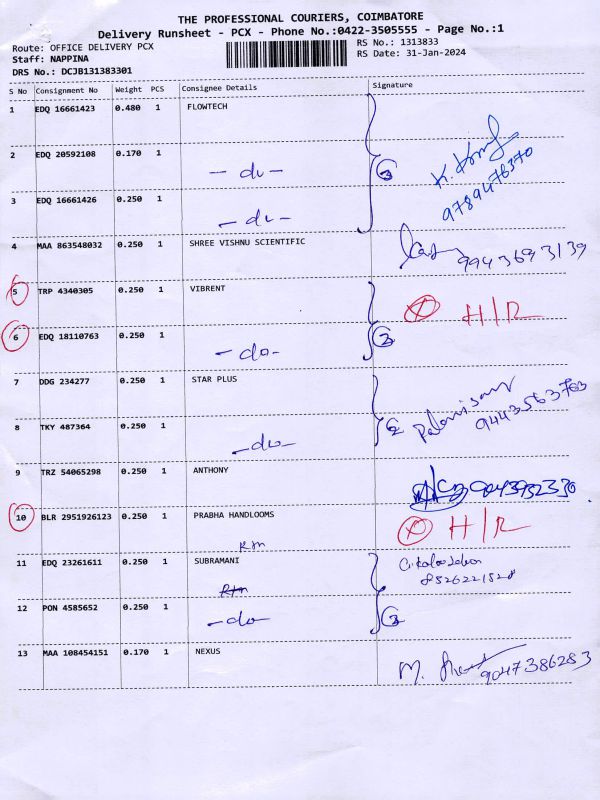 THE PROFESSIONAL COURIERS, COIMBATORE
Delivery Runsheet - PCX - Phone No.:0422-3505555 - Page No.:1
Route: OFFICE DELIVERY PCX
RS No.: 1313833
Staff: NAPPINA
RS Date: 31-Jan-2024
DRS No.: DCJB131383301
S No Consignment No Weight PCS Consignee Details Signature
1 EDQ 16661423 0.480 1 FLOWTECH
2 EDQ 20592108 0.170 1
- du -
3 EDQ 16661426 0.250 1
- du -
3
9789476370
4 MAA 863548032 0.250 1 SHREE VISHNU SCIENTIFIC
9943693139
5 TRP 4340305 0.250 1 VIBRENT
H/R
6 EDQ 18110763 0.250 1
- do - 2
7 DDG 234277 0.250 1 STAR PLUS
9443563763
8 TKY 487364 0.250 1
- do - 2
9 TRZ 54065298 0.250 1 ANTHONY
9043932330
10 BLR 2951926123 0.250 1 PRABHA HANDLOOMS
H/R
11 EDQ 23261611 0.250 1 SUBRAMANI
8526221528
12 PON 4585652 0.250 1
- do -
13 MAA 108454151 0.170 1 NEXUS
9047386283